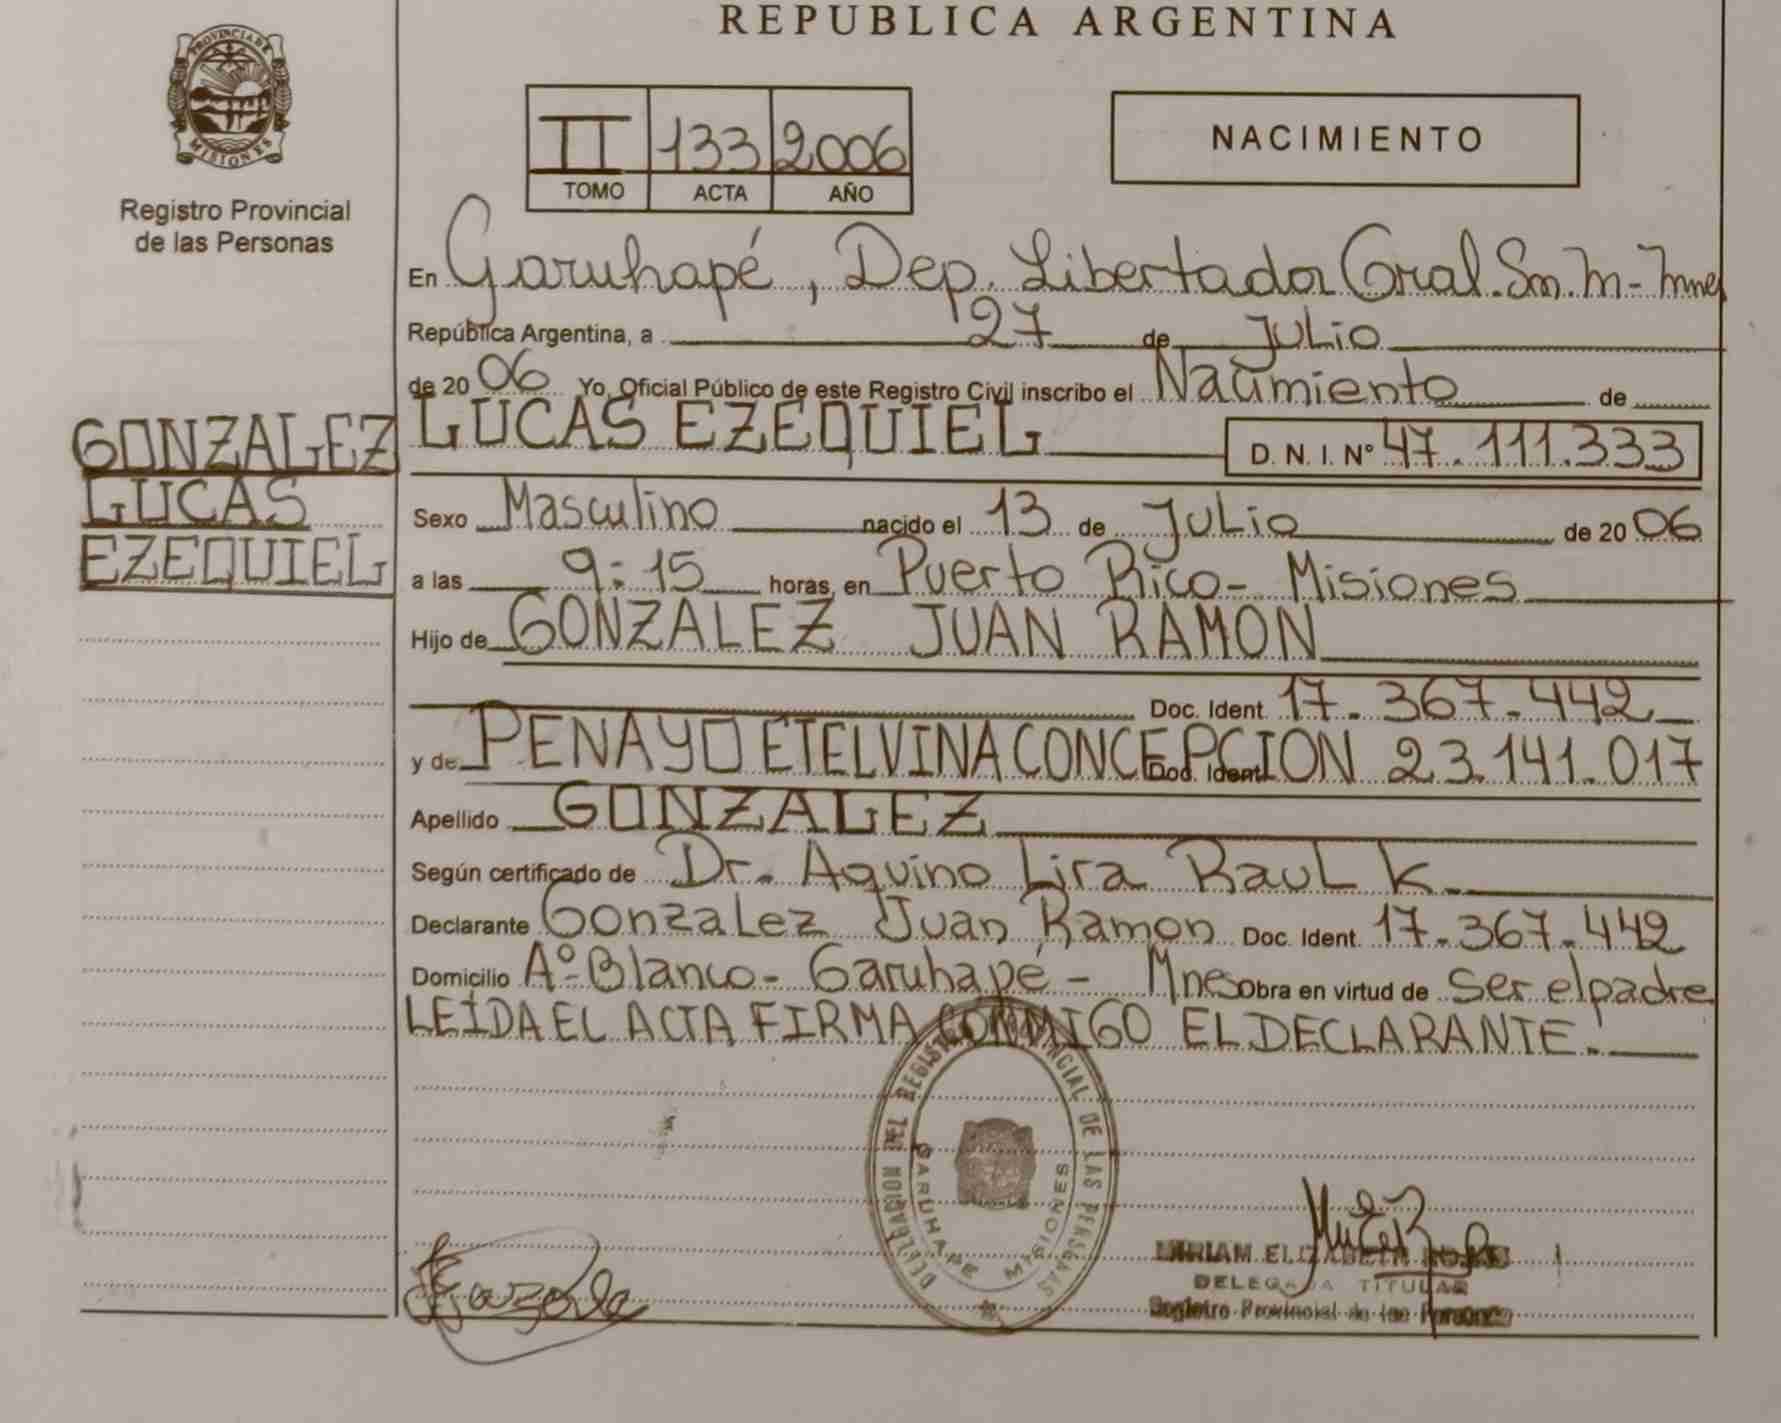 REPUBLICA ARGENTINA
PROVINCIA DE MISIONES
Registro Provincial
de las Personas
II 133 2006
TOMO ACTA AÑO
NACIMIENTO
En Garuhapé, Dep. Libertador Gral. Sn. M - Mnes
República Argentina, a 27 de Julio
de 20 06 Yo, Oficial Público de este Registro Civil inscribo el Nacimiento de
GONZALEZ
LUCAS
EZEQUIEL
LUCAS EZEQUIEL D. N. I. N° 47.111.333
Sexo Masculino nacido el 13 de Julio de 20 06
a las 9:15 horas, en Puerto Rico - Misiones
Hijo de GONZALEZ JUAN RAMON
Doc. Ident. 17.367.442
y de PENAYO ETELVINA CONCEPCION Doc. Ident. 23.141.017
Apellido GONZALEZ
Según certificado de Dr. Aquino Lira Raul K.
Declarante Gonzalez Juan Ramon Doc. Ident. 17.367.442
Domicilio A° Blanco - Garuhapé - Mnes Obra en virtud de Ser el padre
LEÍDA EL ACTA FIRMA CONMIGO EL DECLARANTE.
DELEGACION DEL REGISTRO PROVINCIAL DE LAS PERSONAS
GARUHAPE MISIONES
MIRIAM ELIZABETH
DELEGADA TITULAR
Registro Provincial de las Personas